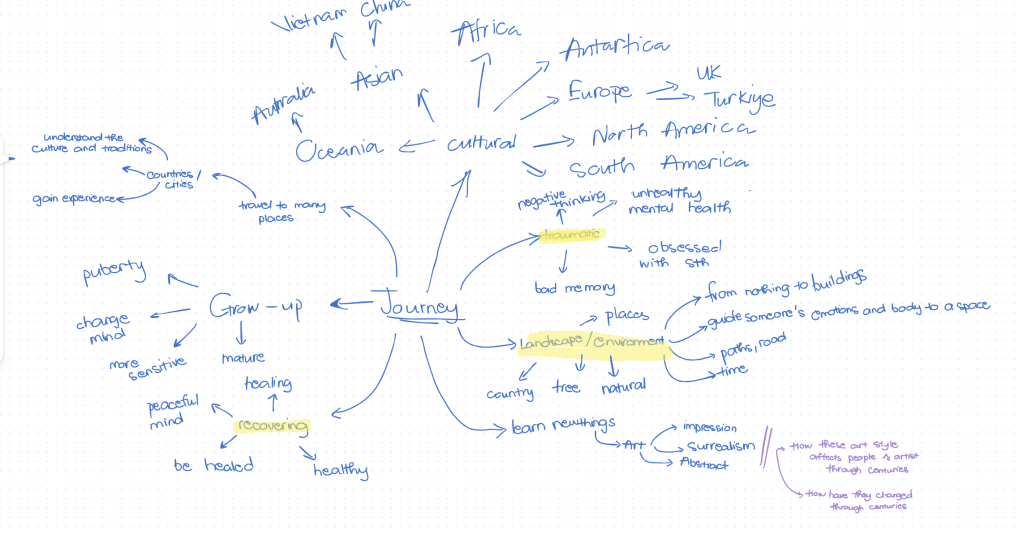 Vietnam China
Asian
Autralia
Africa
Antartica
Europe
UK
Turkiye
Oceania
cultural
North America
South America
understand the
culture and traditions
countries/
cities
gain experience
travel to many
places
negative thinking
unhealthy
mental health
traumatic
obsessed
with sth
bad memory
puberty
Grow-up
Journey
change
mind
more
sensitive
mature
places
Landscape/environment
from nothing to buildings
guide someone's emotions and body to a space
paths, road
time
country
tree
natural
healing
peaceful
mind
recovering
be healed
healthy
learn newthings
Art
impression
Surrealism
Abstract
How these art style
affects people & artist
through centuries
How have they changed
through centuries